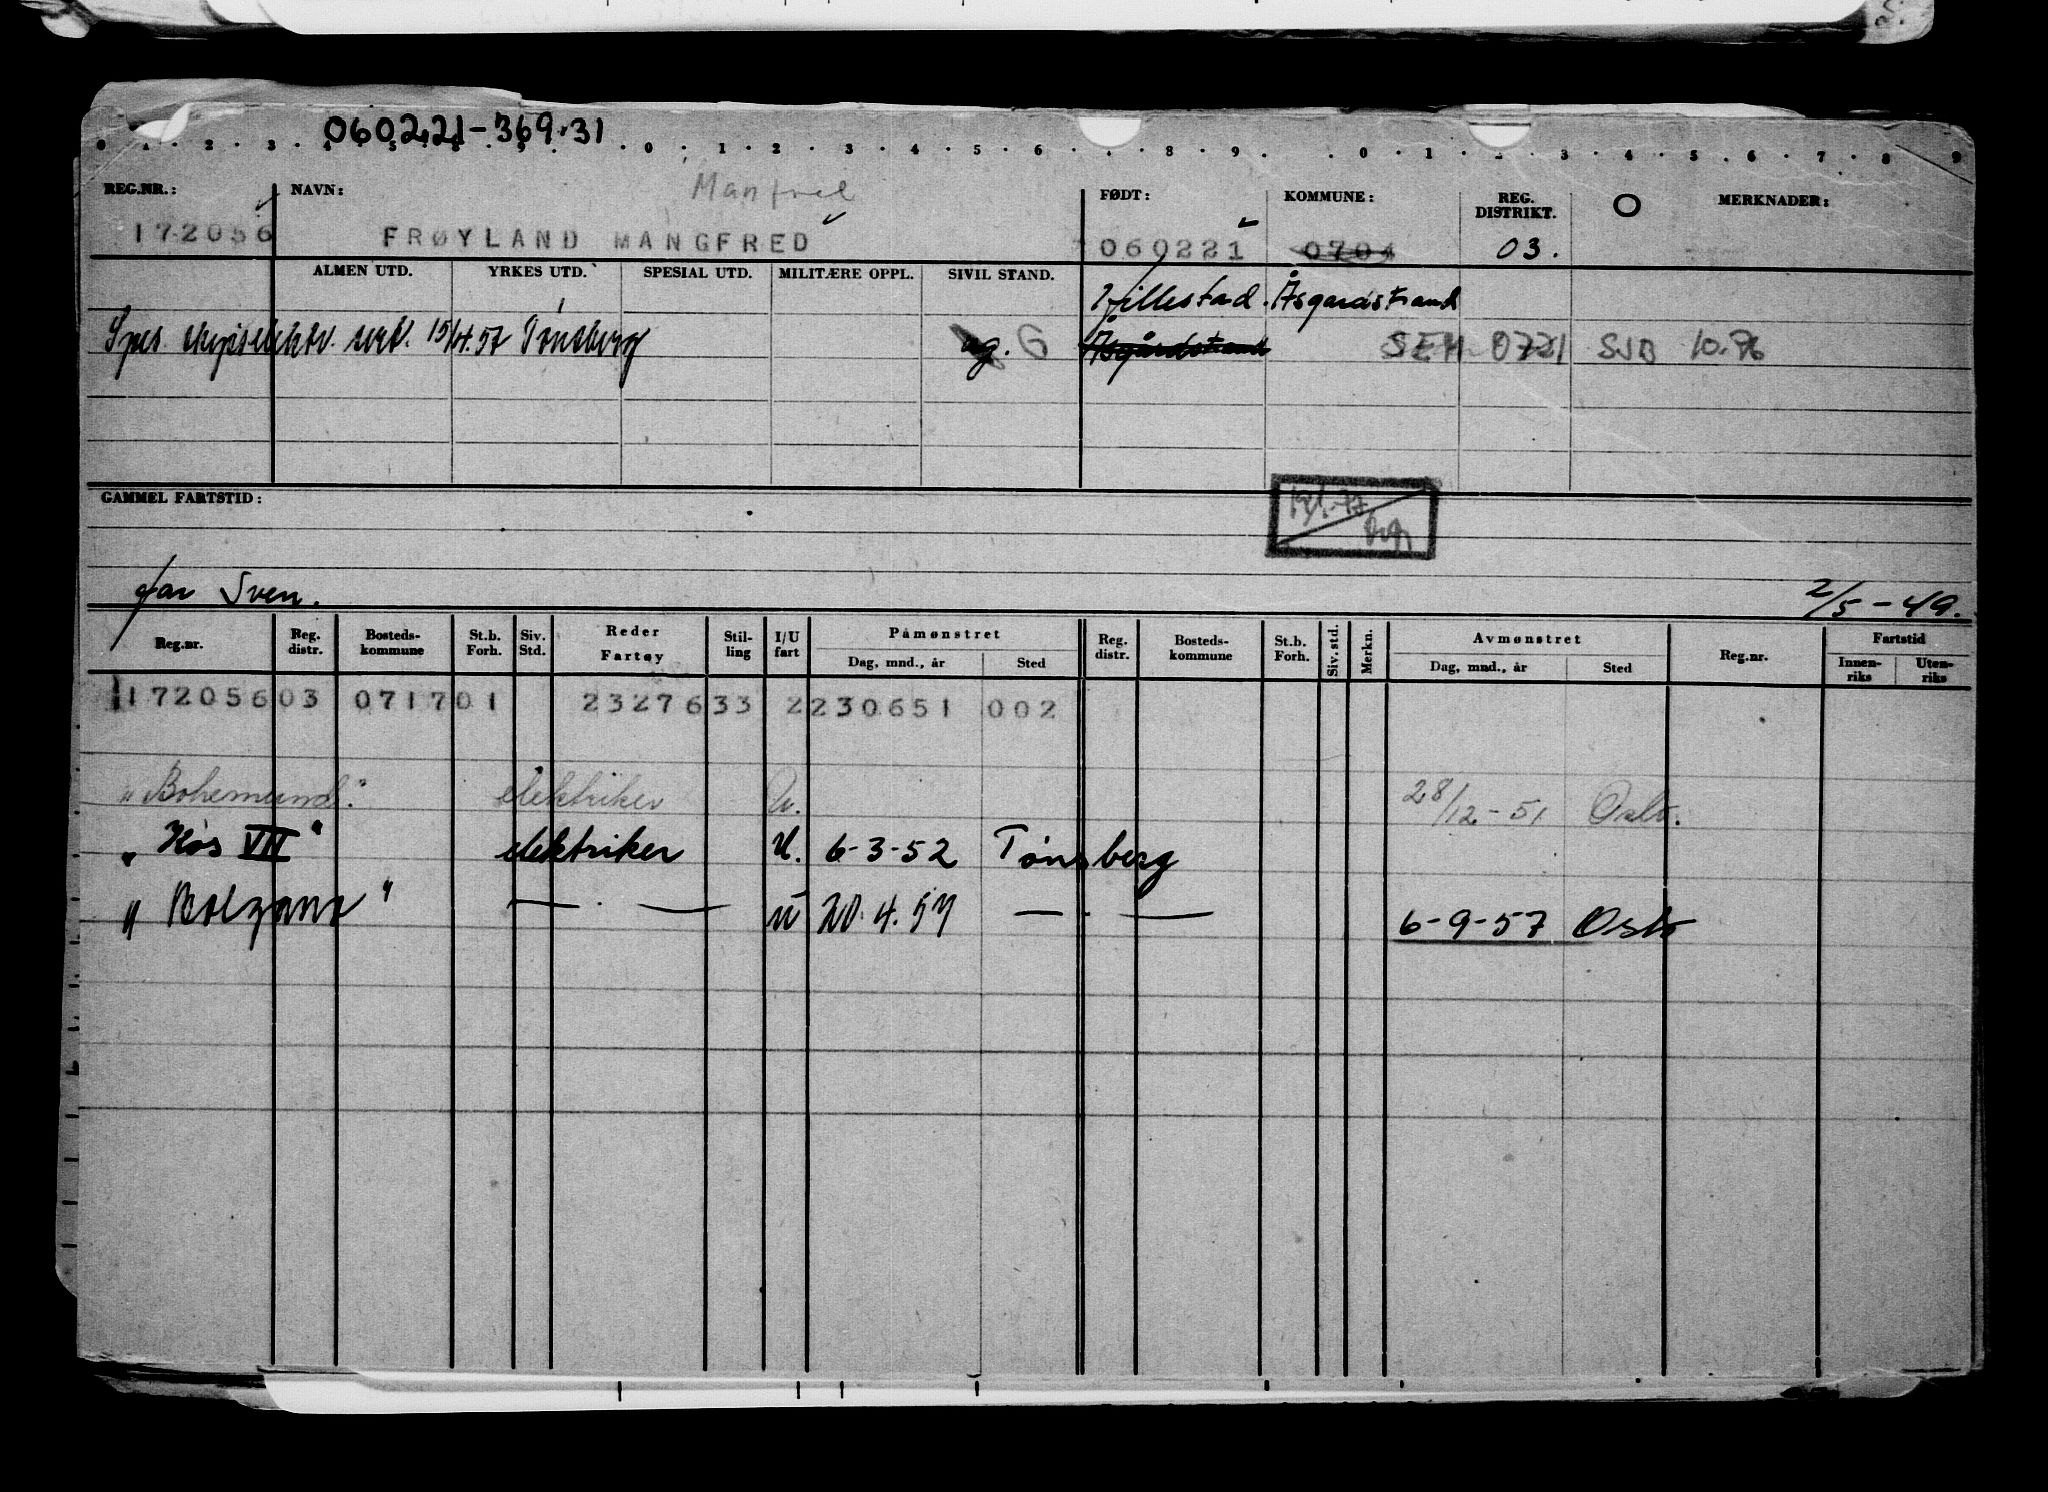 060221-369.31
0 1 2 3 4 5 6 7 8 9 0 1 2 3 4 5 6 7 8 9
REG.NR.: NAVN: Manfred FØDT: KOMMUNE: REG. DISTRIKT. O MERKNADER:
172056 FRØYLAND MANGFRED 060221 0704 03.
ALMEN UTD. YRKES UTD. SPESIAL UTD. MILITÆRE OPPL. SIVIL STAND. Fillestad. Åsgardstrand
Spes skipselektr. sert. 15/4.57 Tønsberg ug. G Åsgårdstrand SEM 0721 SJD 10.76
GAMMEL FARTSTID:
far Sven. 2/5-49.
Reg.nr. Reg. distr. Bosteds-kommune St.b. Forh. Siv. Std. Reder Fartøy Stil-ling I/U fart Påmønstret Dag, mnd., år Sted Reg. distr. Bosteds-kommune St.b. Forh. Siv. std. Merkn. Avmønstret Dag, mnd., år Sted Reg.nr. Fartstid Innen-riks Uten-riks
172056 03 0717 01 23276 33 2 230651 002
"Bohemund." elektriker U. 28/12-51 Oslo.
"Kos VII" elektriker U. 6-3-52 Tønsberg
"Bolzano" — . — u 20.4.57 — . — 6-9-57 Oslo